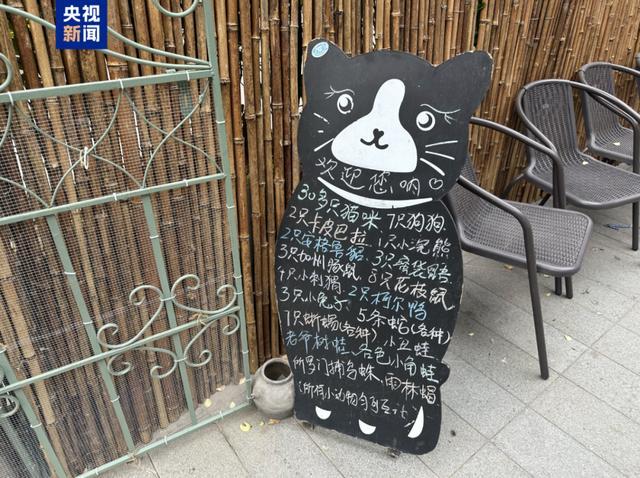 央视
新闻
欢迎您哟♡
30多只猫咪 7只狗狗
2只卡皮巴拉 1只小浣熊
2只安格鲁貂 3只
3只加州豚鼠 8只花枝鼠
4只小刺猬 2只柯尔鸭
3只小兔子 5条蛇(各种)
7只蜥蜴(各种) 小丑蛙
老爷树蛙 各色小角蛙
所罗门捕鸟蛛 雨林蝎
(所有小动物均可互